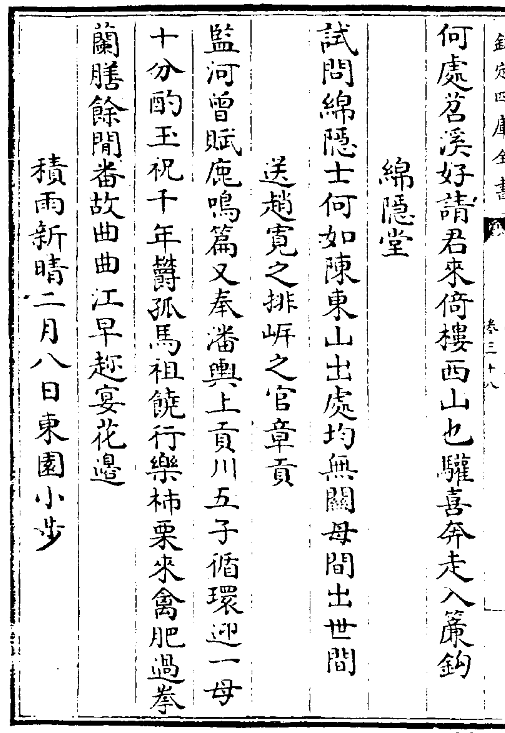 欽定四庫全書
卷三十八
何處苕溪好請君來倚樓西山也驩喜奔走入簾鉤
綿隱堂
試問綿隱士何如陳東山出處均無闗毋間出世間
送趙寛之排岍之官章貢
監河曾賦鹿鳴篇又奉潘輿上貢川五子循環迎一母
十分酌玉祝千年欝孤馬祖饒行樂柿栗來禽肥過拳
蘭膳餘閒畨故曲曲江早趂宴花邉
積雨新晴二月八日東園小步